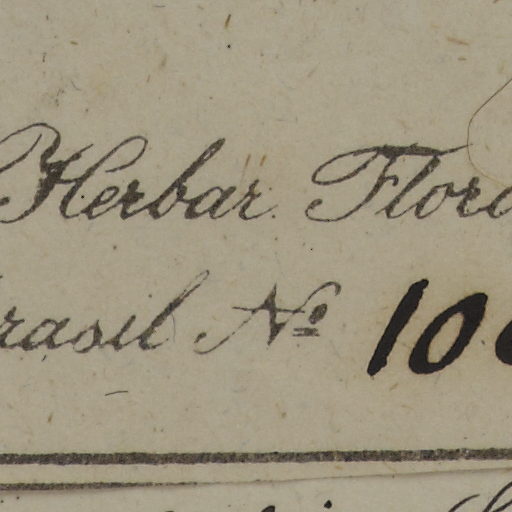 Herbar. Flora
rasil Nº 10